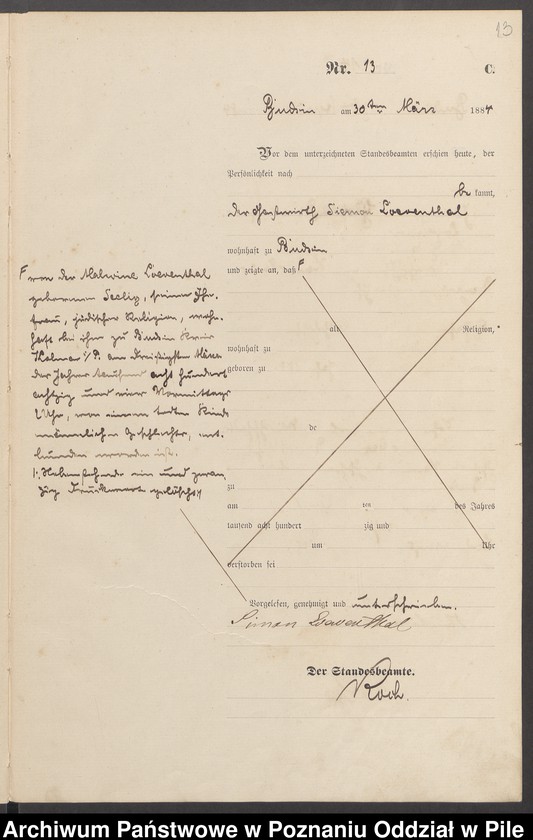 13
Nr. 13 C.
Budsin am 30ten März 1884
Vor dem unterzeichneten Standesbeamten erschien heute, der
Persönlichkeit nach
be kannt,
der Gastwirth Simon Loewenthal
wohnhaft zu Budsin
und zeigte an, daß F
F von der Malwine Loewenthal
geborenen Seelig, seiner Ehe-
frau, jüdischer Religion, wohn-
haft bei ihm zu Budsin Kreis
Kolmar i/P. am dreißigsten März
des Jahres tausend acht hundert
achtzig und vier Vormittags
Uhr, von einem todten Kinde
männlichen Geschlechts, ent-
bunden worden ist.
Nebenstehende ein und zwan-
zig Druckworte gelöscht
alt Religion,
wohnhaft zu
geboren zu
de
zu
am ten des Jahres
tausend acht hundert zig und
um Uhr
verstorben sei
Vorgelesen, genehmigt und unterschrieben.
Simon Loewenthal
Der Standesbeamte.
Koch.
Archiwum Państwowe w Poznaniu Oddział w Pile